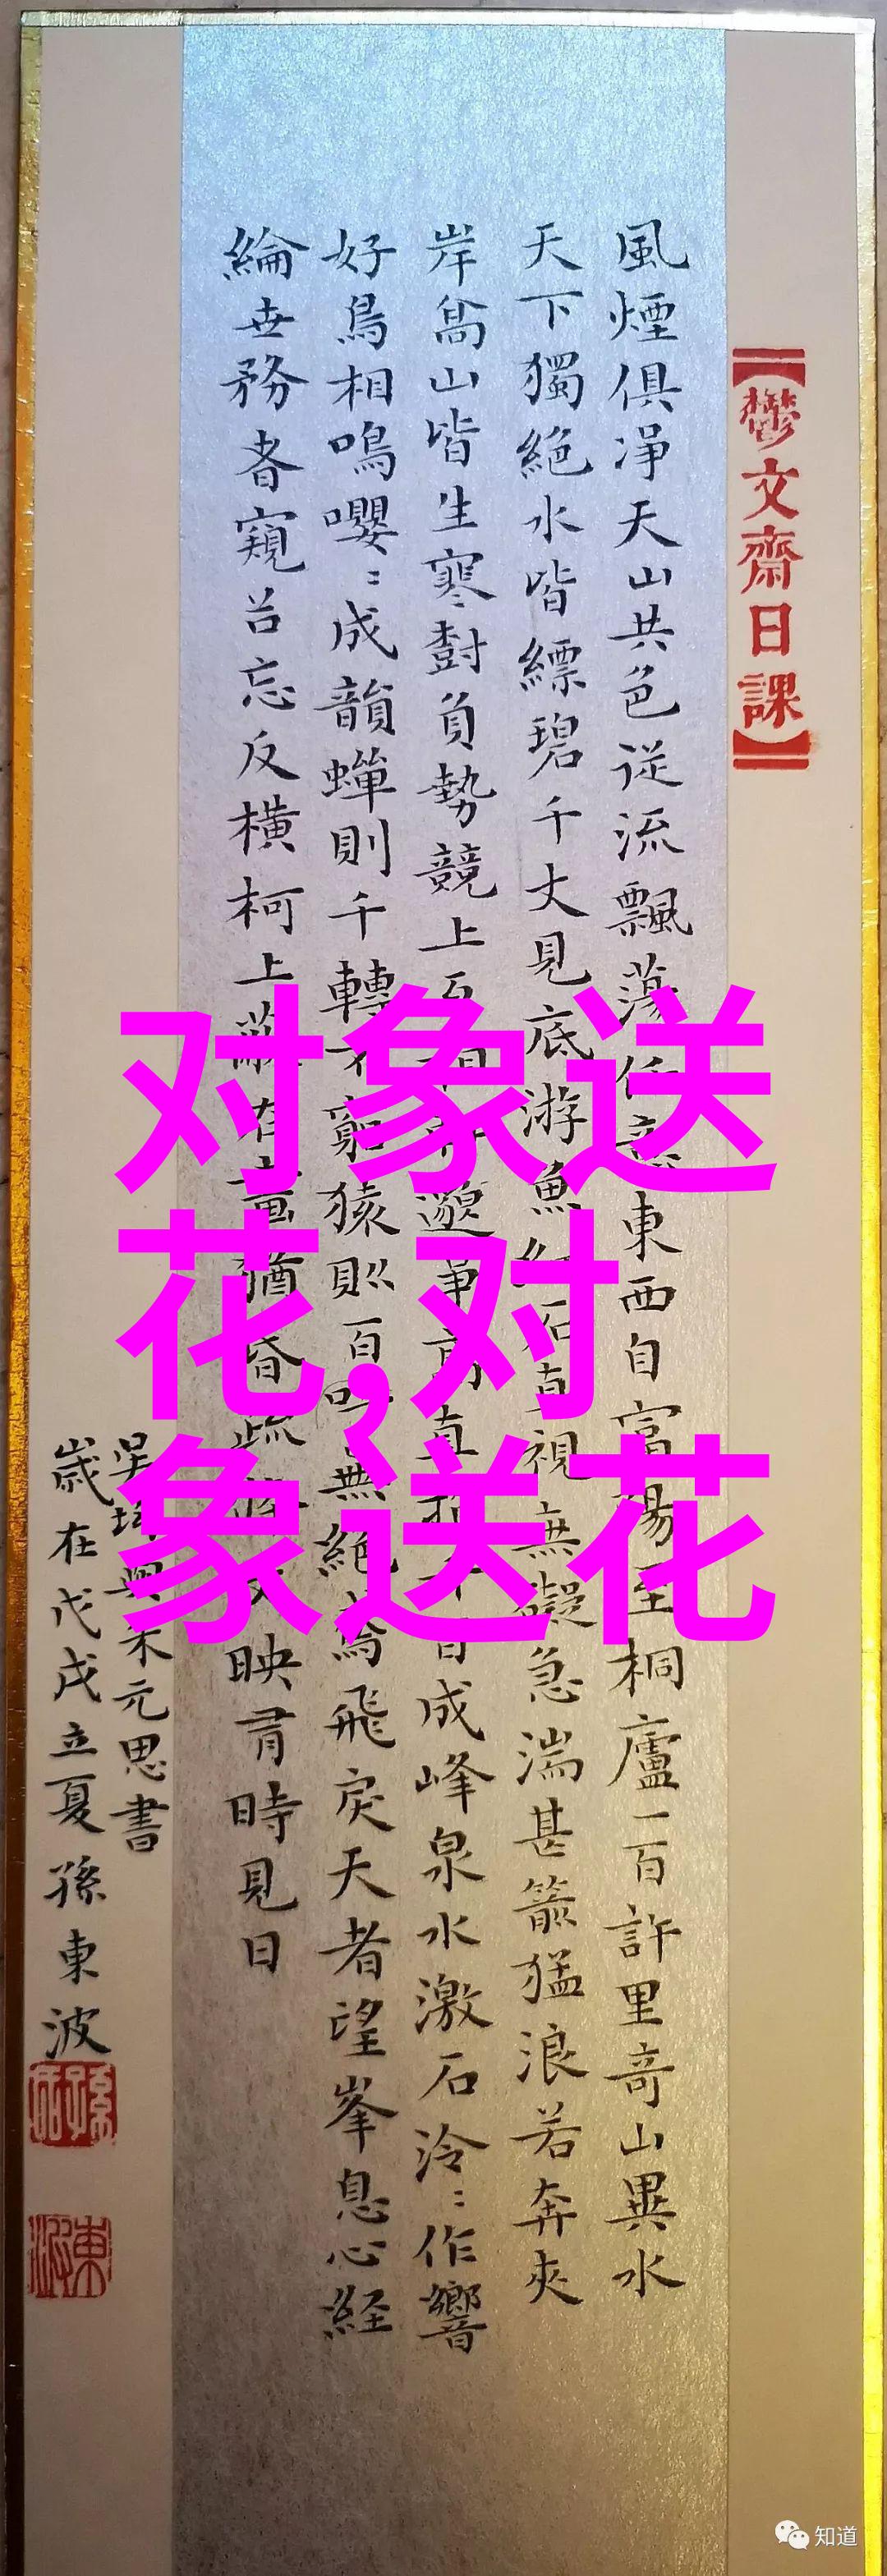 【鬱文齋日課】
風煙俱淨天山共色從流飄蕩任意東西自富陽至桐廬一百許里奇山異水
天下獨絕水皆縹碧千丈見底游魚細石直視無礙急湍甚箭猛浪若奔夾
岸高山皆生寒樹負勢競上互相軒邈爭高直指千百成峰泉水激石泠〻作響
好鳥相鳴嚶〻成韻蟬則千轉不窮猿則百叫無絕鳶飛戾天者望峯息心経
綸世務者窺谷忘反橫柯上蔽在晝猶昏疏條交映有時見日
吳均與朱元思書
歲在戊戌立夏孫東波
对象送
花,对
象送花
知道